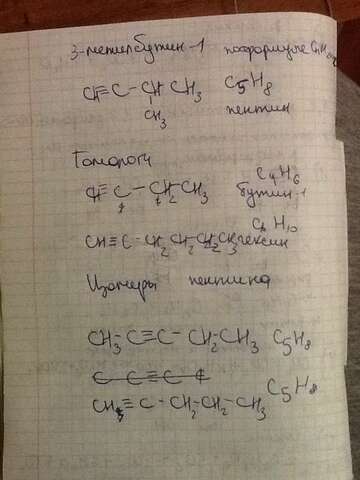 3-метилбутин-1 по формуле
CH≡C-CH-CH3 C5H8
CH3 пентин
Гомологи
C4H6
CH≡C-CH2-CH3 бутин-1
C6H10
CH≡C-CH2-CH2-CH2-CH3 гексин
Изомеры пентина
CH3-C≡C-CH2-CH3 C5H8
C-C≡C-C
CH≡C-CH2-CH2-CH3 C5H8